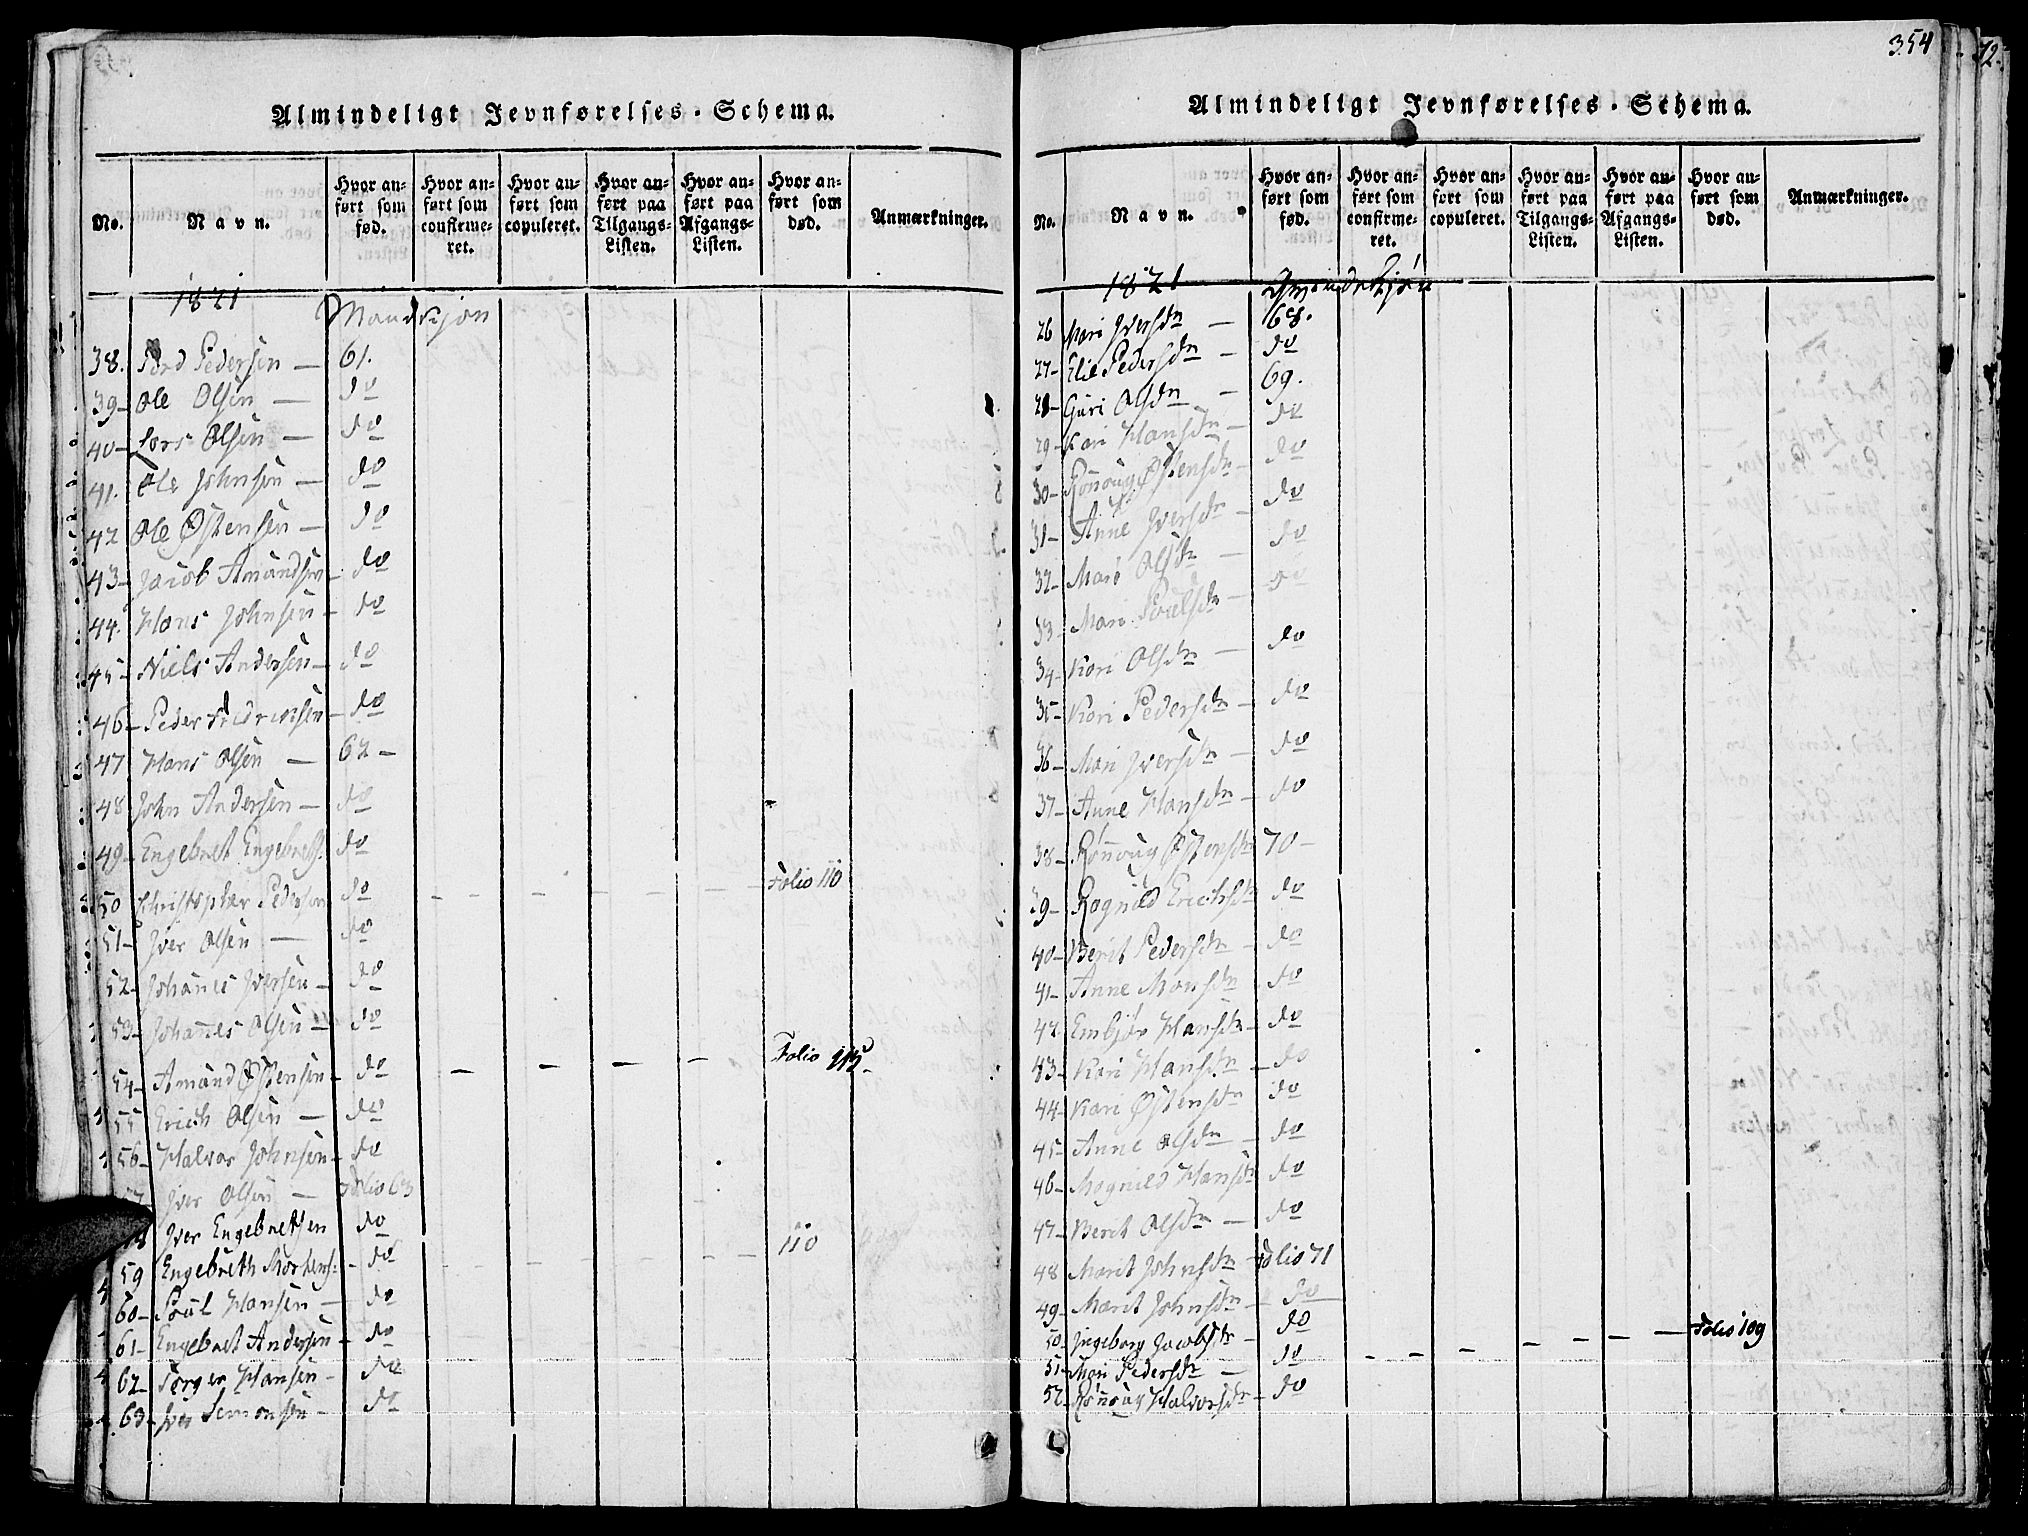 354
Almindeligt Jevnførelses-Schema.
No. Navn. Hvor anført som fød. Hvor anført som confirmeret. Hvor anført som copuleret. Hvor anført paa Tilgangs-Listen. Hvor anført paa Afgangs-Listen. Hvor anført som død. Anmærkninger.
1821 Mandkjøn
38. Tord Pedersen — 61.
39 – Ole Olsen — do
40 – Lars Olsen — do
41. Ole Johnsen — do
42 Ole Østensen — do
43 – Jacob Amundsen – do
44. Hans Johnsen – do
45 – Niels Andersen – do
46 – Peder Fredriksen – do
47 Hans Olsen — 62 –
48 John Andersen — do
49 – Engebret Engebrets. do
50 Christopher Pedersen do – – – – – – Folio 110
51 – Iver Olsen — do
52 – Johanes Iversen – do
53 – Johannes Olsen – do
54 – Amund Østensen – do – – – – Folio 115
55 Erich Olsen — do
56 – Halvor Johnsen – do
Iver Olsen — Folio 63
Iver Engebretsen do
59 Engebreth Mortens. – do – – – – – 110
60 – Poul Hansen – do
61 – Engebret Andersen – do
62 – Torger Hansen – do
63 – Iver Simonsen – do
Almindeligt Jevnførelses-Schema.
No. Navn. Hvor anført som fød. Hvor anført som confirmeret. Hvor anført som copuleret. Hvor anført paa Tilgangs-Listen. Hvor anført paa Afgangs-Listen. Hvor anført som død. Anmærkninger.
1821 Qvindekjøn
26 Mari Iversdn — 68.
27 – Elie Pedersdn – do
28 – Guri Olsdn – 69.
29 – Kari Hansdn – do
30 – Rønoug Østensdn – do
31 – Anne Iversdn – do
32 – Mari Olsdn — do
33 – Mari Poulsdn – do
34 – Kari Olsdn — do
35 – Kari Pedersdn – do
36 – Mari Iversdn – do
37 – Anne Hansdn – do
38 – Rønnoug Østensdn 70 –
39 – Rognild Erichsdn do
40 – Berit Pedersdn do
41 – Anne Monsdn – do
42 – Embjør Hansdn – do
43 – Kari Hansdn – do
44 – Kari Østensdn do
45 – Anne Olsdn – do
46 – Mognild Hansdn do
47 – Berit Olsdn — do
48 Marit Johnsdn Folio 71
49 – Marit Johnsdn – do
50 – Ingeborg Jacobsdr – do – – – – – – Folio 109
51 – Mari Pedersdn — do
52 – Rønnoug Halvorsdn – do